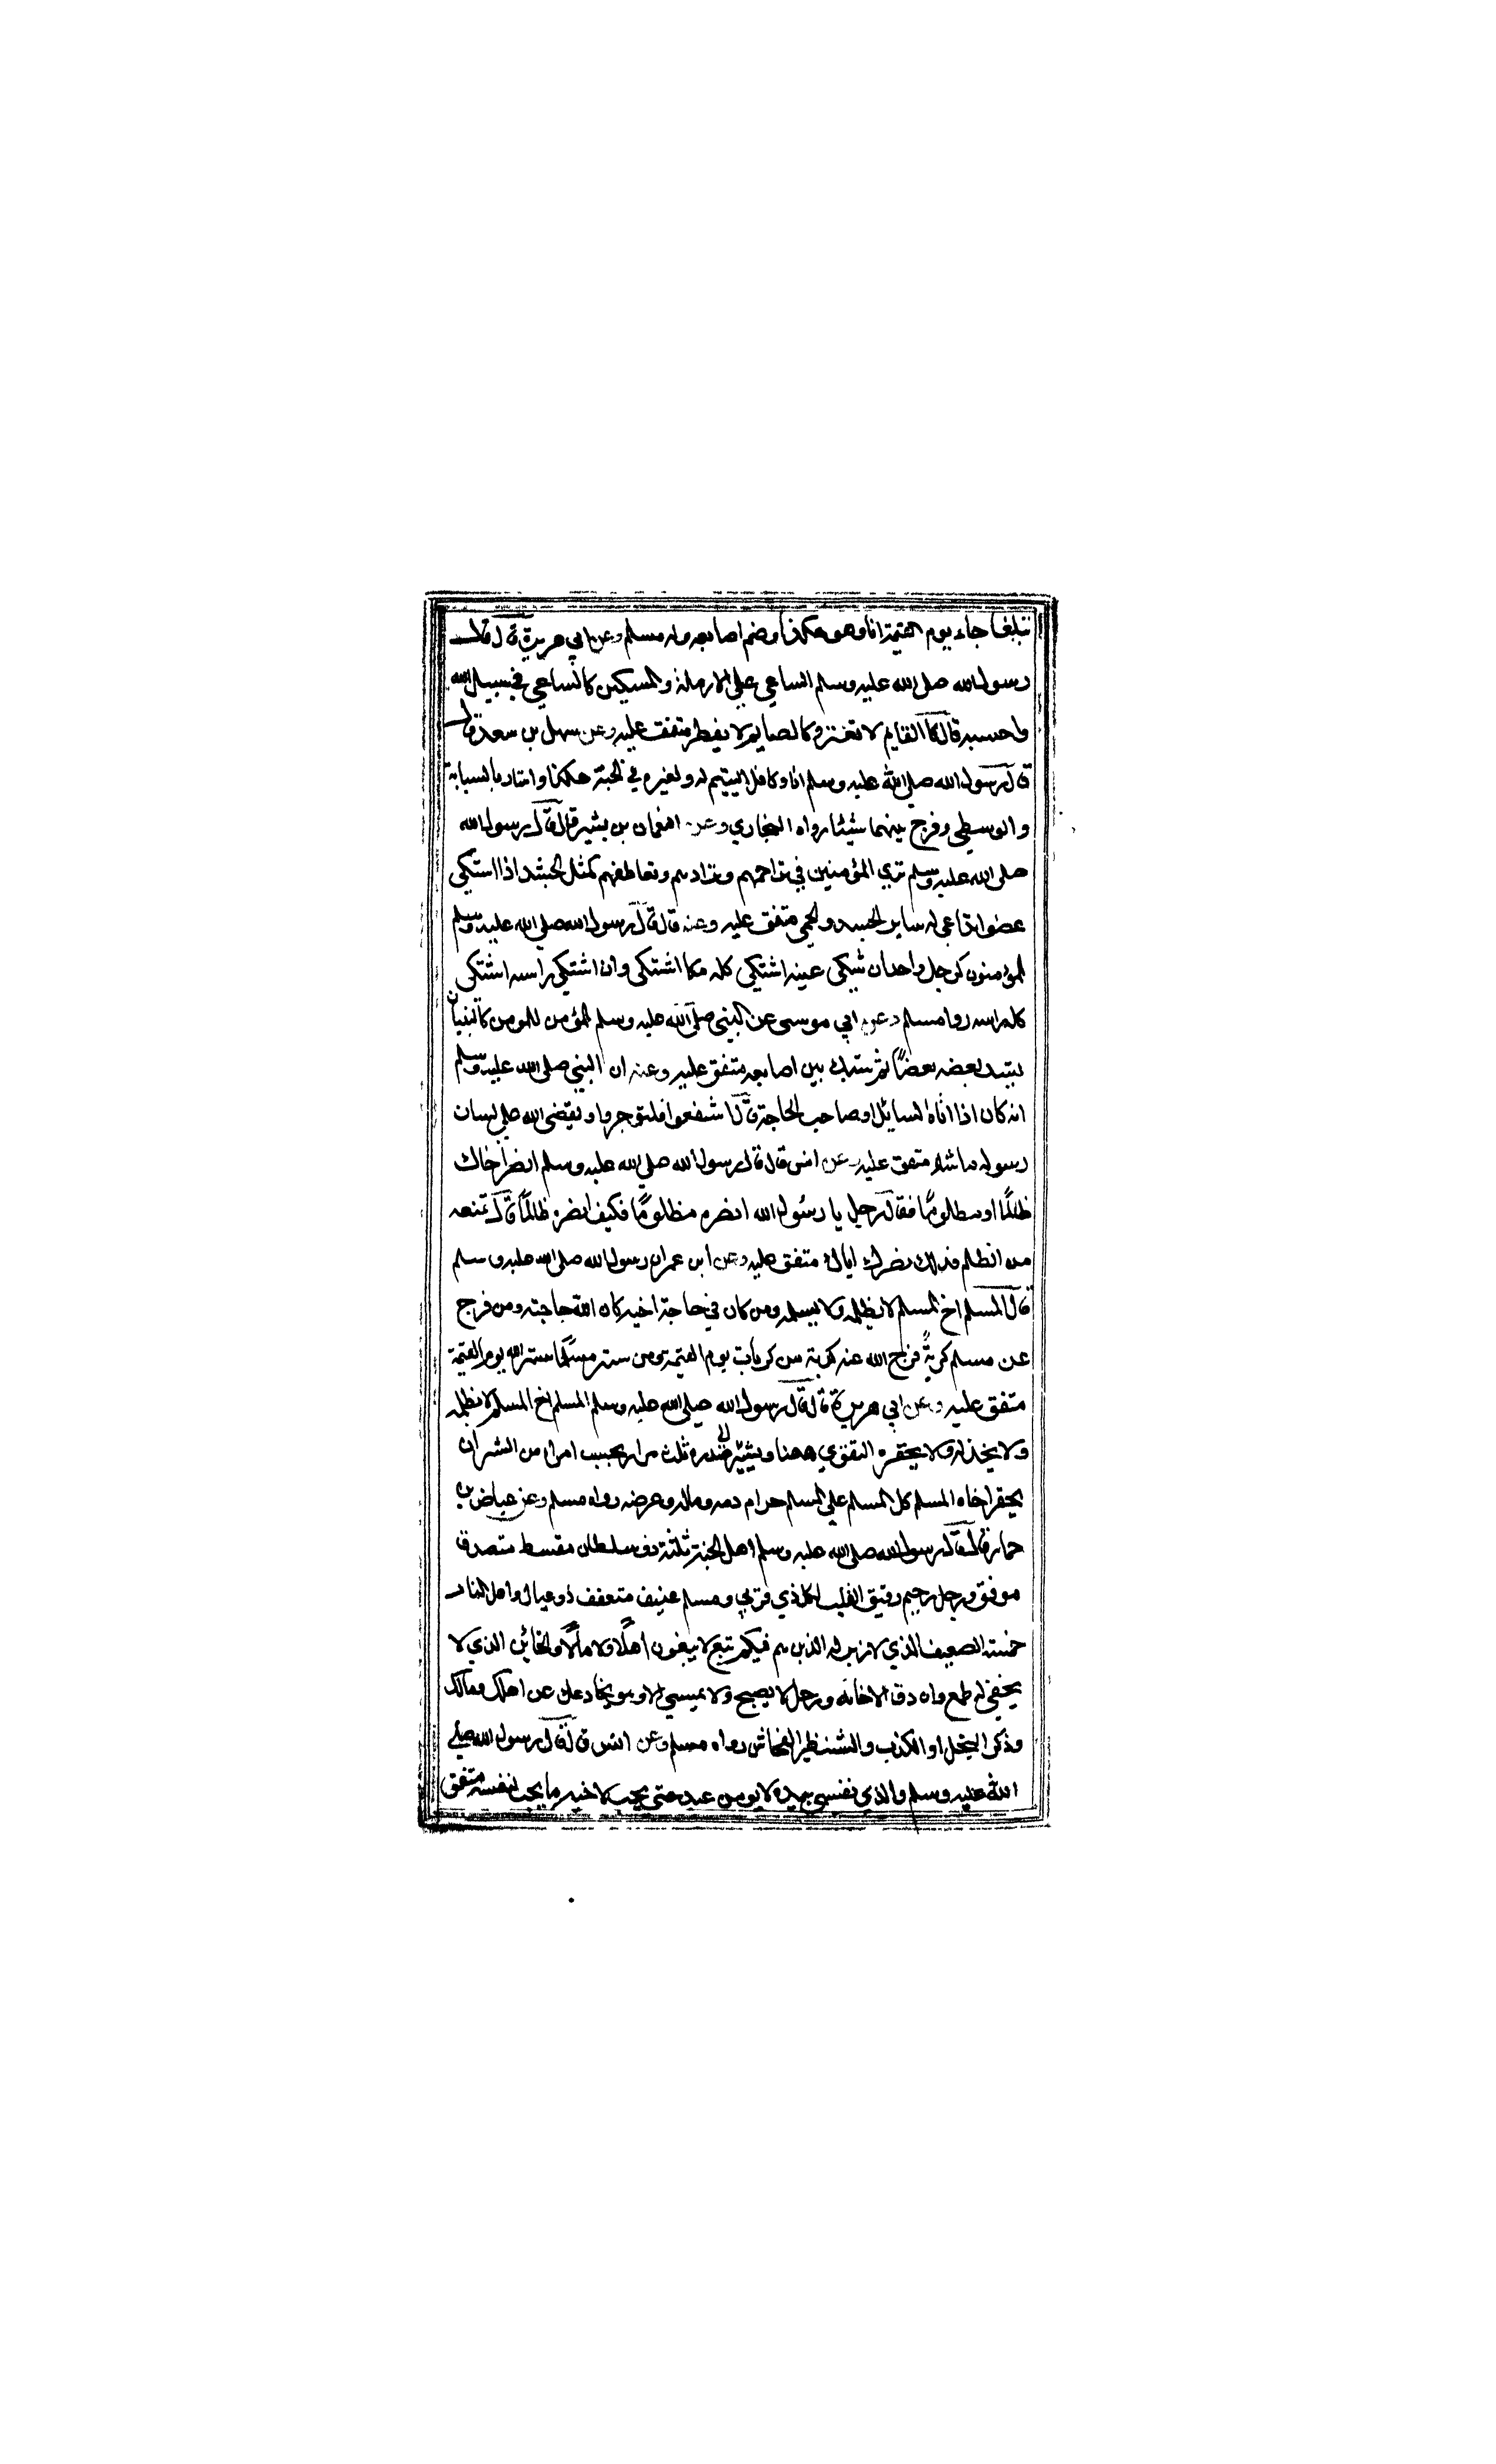 تبلغا جاء يوم القيمة انا وهو هكذا وضم اصابعه رواه مسلم وعن ابي هريرة قال قال
رسول الله صلى الله عليه وسلم الساعي على الارملة والمسكين كالساعي في سبيل الله
واحسبه قال كالقايم لا تفتر وكالصايم لا يفطر متفق عليه وعن سهل بن سعد قال
قال رسول الله صلى الله عليه وسلم انا وكافل اليتيم له ولغيره في الجنة هكذا واشار بالسبابة
والوسطى وفرج بينهما شيئا رواه البخاري وعن النعمان بن بشير قال قال رسول الله
صلى الله عليه وسلم تري المؤمنين في تراحمهم وتوادهم وتعاطفهم كمثل الجسد اذا اشتكى
عضوا تداعى له ساير الجسد والحمى متفق عليه وعنه قال قال رسول الله صلى الله عليه وسلم
المؤمنون كرجل واحد ان شتكى عينه اشتكى كله مكا اشتكى وان اشتكى راسه اشتكى
كله راسه رواه مسلم وعن ابي موسى عن النبي صلى الله عليه وسلم المؤمن للمومن كالبنيان
يشد بعضه بعضًا ثم شبك بين اصابعه متفق عليه وعنه ان النبي صلى الله عليه وسلم
انه كان اذا اتاه السايل او صاحب الحاجة قال اشفعوا فلتوجروا ويقضى الله على لسان
رسوله ماشاء متفق عليه وعن انس قال قال رسول الله صلى الله عليه وسلم انصر اخاك
ظالمًا او مظلومًا فقال رجل يا رسول الله انصره مظلومًا فكيف انصره ظالمًا قال تمنعه
من الظلم فذلك نصرك اياه متفق عليه وعن ابن عمر ان رسول الله صلى الله عليه وسلم
قال المسلم اخ المسلم لا يظلمه ولا يسلمه ومن كان في حاجة اخيه كان الله حاجته ومن فرج
عن مسلم كربةً فرج الله عنه كربة من كربات يوم القيمة ومن ستر مسلمًا ستره الله يوم القيمة
متفق عليه وعن ابي هريرة قال قال رسول الله صلى الله عليه وسلم المسلم اخ المسلم لا يظلمه
ولا يخذله ولا يحقره التقوي ههنا ويشير الى صدره ثلث مرار بحسب امرئ من الشر ان
يحقر اخاه المسلم كل المسلم على المسلم حرام دمه وماله وعرضه رواه مسلم وعن عياض بن
حمار قال قال رسول الله صلى الله عليه وسلم اهل الجنة ثلثة ذو سلطان مقسط متصدق
موفق ورجل رحيم رقيق القلب لكل ذي قربي ومسلم عفيف متعفف ذو عيال واهل النار
خمسة الضعيف الذي لا زبر له الذين هم فيكم تبع لا يبغون اهلًا ولا مالًا والخائن الذي لا
يخفى له طمع وان دق الا خانه ورجل لا يصبح ولا يمسي الا وهو يخادعك عن اهلك ومالك
وذكر البخل او الكذب والشنظير الفحاش رواه مسلم وعن انس قال قال رسول الله صلى
الله عليه وسلم والذي نفسي بيده لا يومن عبد حتى يحب لاخيه ما يحب لنفسه متفق